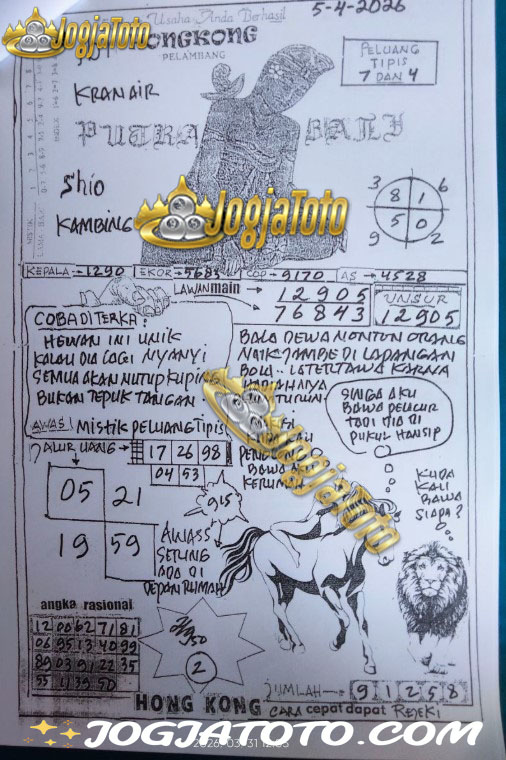 Usaha Anda Berhasil
5-4-2026
JogjaToto
HONGKONG
PELAMBANG
PELUANG
TIPIS
7 DAN 4
KRANAIR
PUTRA BALI
Shio
KAMBING
JogjaToto
3 6
8 1
5 0
9 2
KEPALA→1290 EKOR→5683 COP→9170 AS→4528
LAWAN main
12905
76843
UNSUR
12905
COBA DI TERKA:
HEWAN INI UNIK
KALAU DIA LAGI NYANYI
SEMUA AKAN NUTUP KUPING
BUKAN TEPUK TANGAN
BOLA DEWA NONTON ORANG
DI LAPANGAN
KARNA
SINGA AKU
BAWA PELUCUR
TADI DIA DI
PUKUL HANSIP
AWAS! MISTIK PELUANG TIPIS
JALUR UANG
17 26 98
04 53
05 21
19 59
915
BAWA
KERUMAH
JogjaToto
KUDA
KALI
BAWA
SIAPA?
AWASS
SETUNG
ADA DI
DEPAN RUMAH
angka rasional
12 00 62 71 81
06 95 13 40 99
89 03 91 22 35
55 11 39 50
2
JUMLAH→ 9 1 2 5 8
HONG KONG
CARA cepat dapat REJEKI
JOGJATOTO.COM